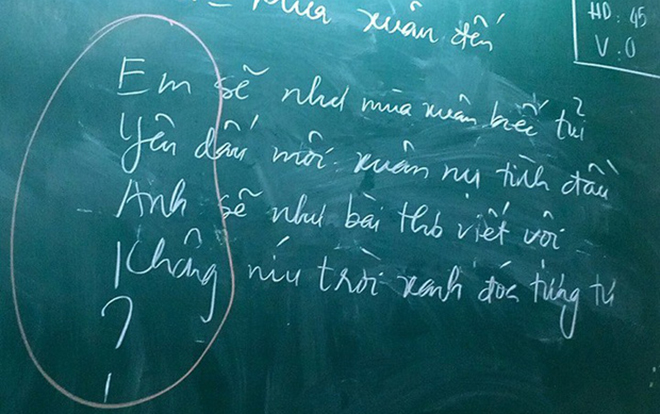 Mùa xuân đến
HD: 45
V: 0
Em sẽ như mùa xuân biếc tủi
Yên dấu môi xuân nụ tình đầu
Anh sẽ như bài thơ viết vội
Không níu trời xanh đóa từng tư
?